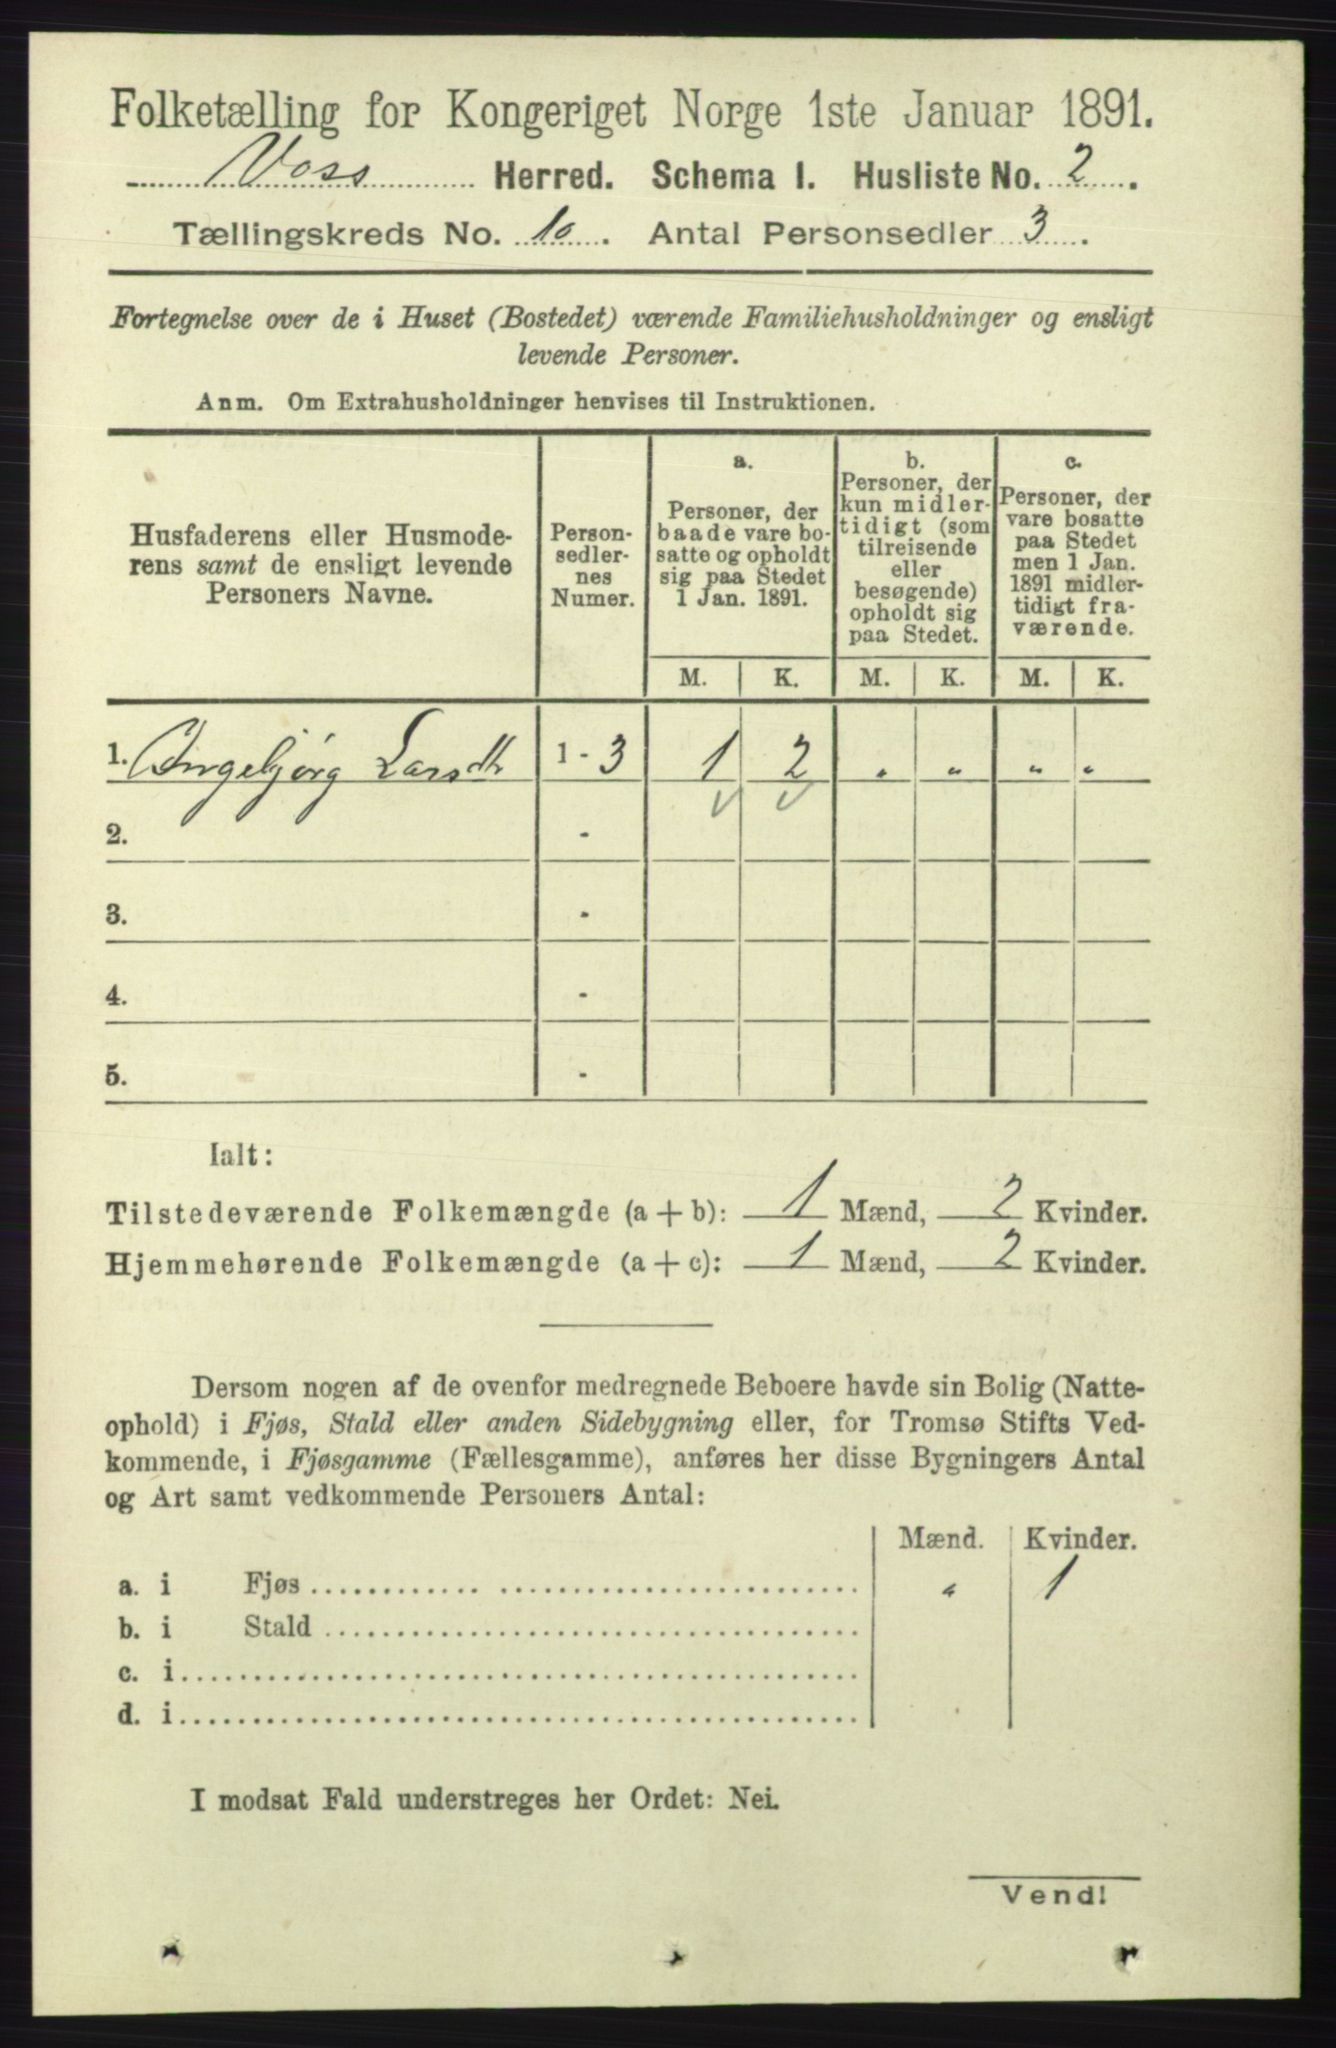 Folketælling for Kongeriget Norge 1ste Januar 1891.
Voss Herred. Schema I. Husliste No. 2.
Tællingskreds No. 10. Antal Personsedler 3.
Fortegnelse over de i Huset (Bostedet) værende Familiehusholdninger og ensligt
levende Personer.
Anm. Om Extrahusholdninger henvises til Instruktionen.
Husfaderens eller Husmode-
rens samt de ensligt levende
Personers Navne.
Person-
sedler-
nes
Numer.
a.
Personer, der
baade vare bo-
satte og opholdt
sig paa Stedet
1 Jan. 1891.
b.
Personer, der
kun midler-
tidigt (som
tilreisende
eller
besøgende)
opholdt sig
paa Stedet.
c.
Personer, der
vare bosatte
paa Stedet
men 1 Jan.
1891 midler-
tidigt fra-
værende.
M. K. M. K. M. K.
1. Ingebjørg Larsdtr 1 - 3 1 2 " " " "
2. -
3. -
4. -
5. -
Ialt:
Tilstedeværende Folkemængde (a + b): 1 Mænd, 2 Kvinder.
Hjemmehørende Folkemængde (a + c): 1 Mænd, 2 Kvinder.
Dersom nogen af de ovenfor medregnede Beboere havde sin Bolig (Natte-
ophold) i Fjøs, Stald eller anden Sidebygning eller, for Tromsø Stifts Ved-
kommende, i Fjøsgamme (Fællesgamme), anføres her disse Bygningers Antal
og Art samt vedkommende Personers Antal:
Mænd. Kvinder.
a. i Fjøs " 1
b. i Stald
c. i
d. i
I modsat Fald understreges her Ordet: Nei.
Vend!